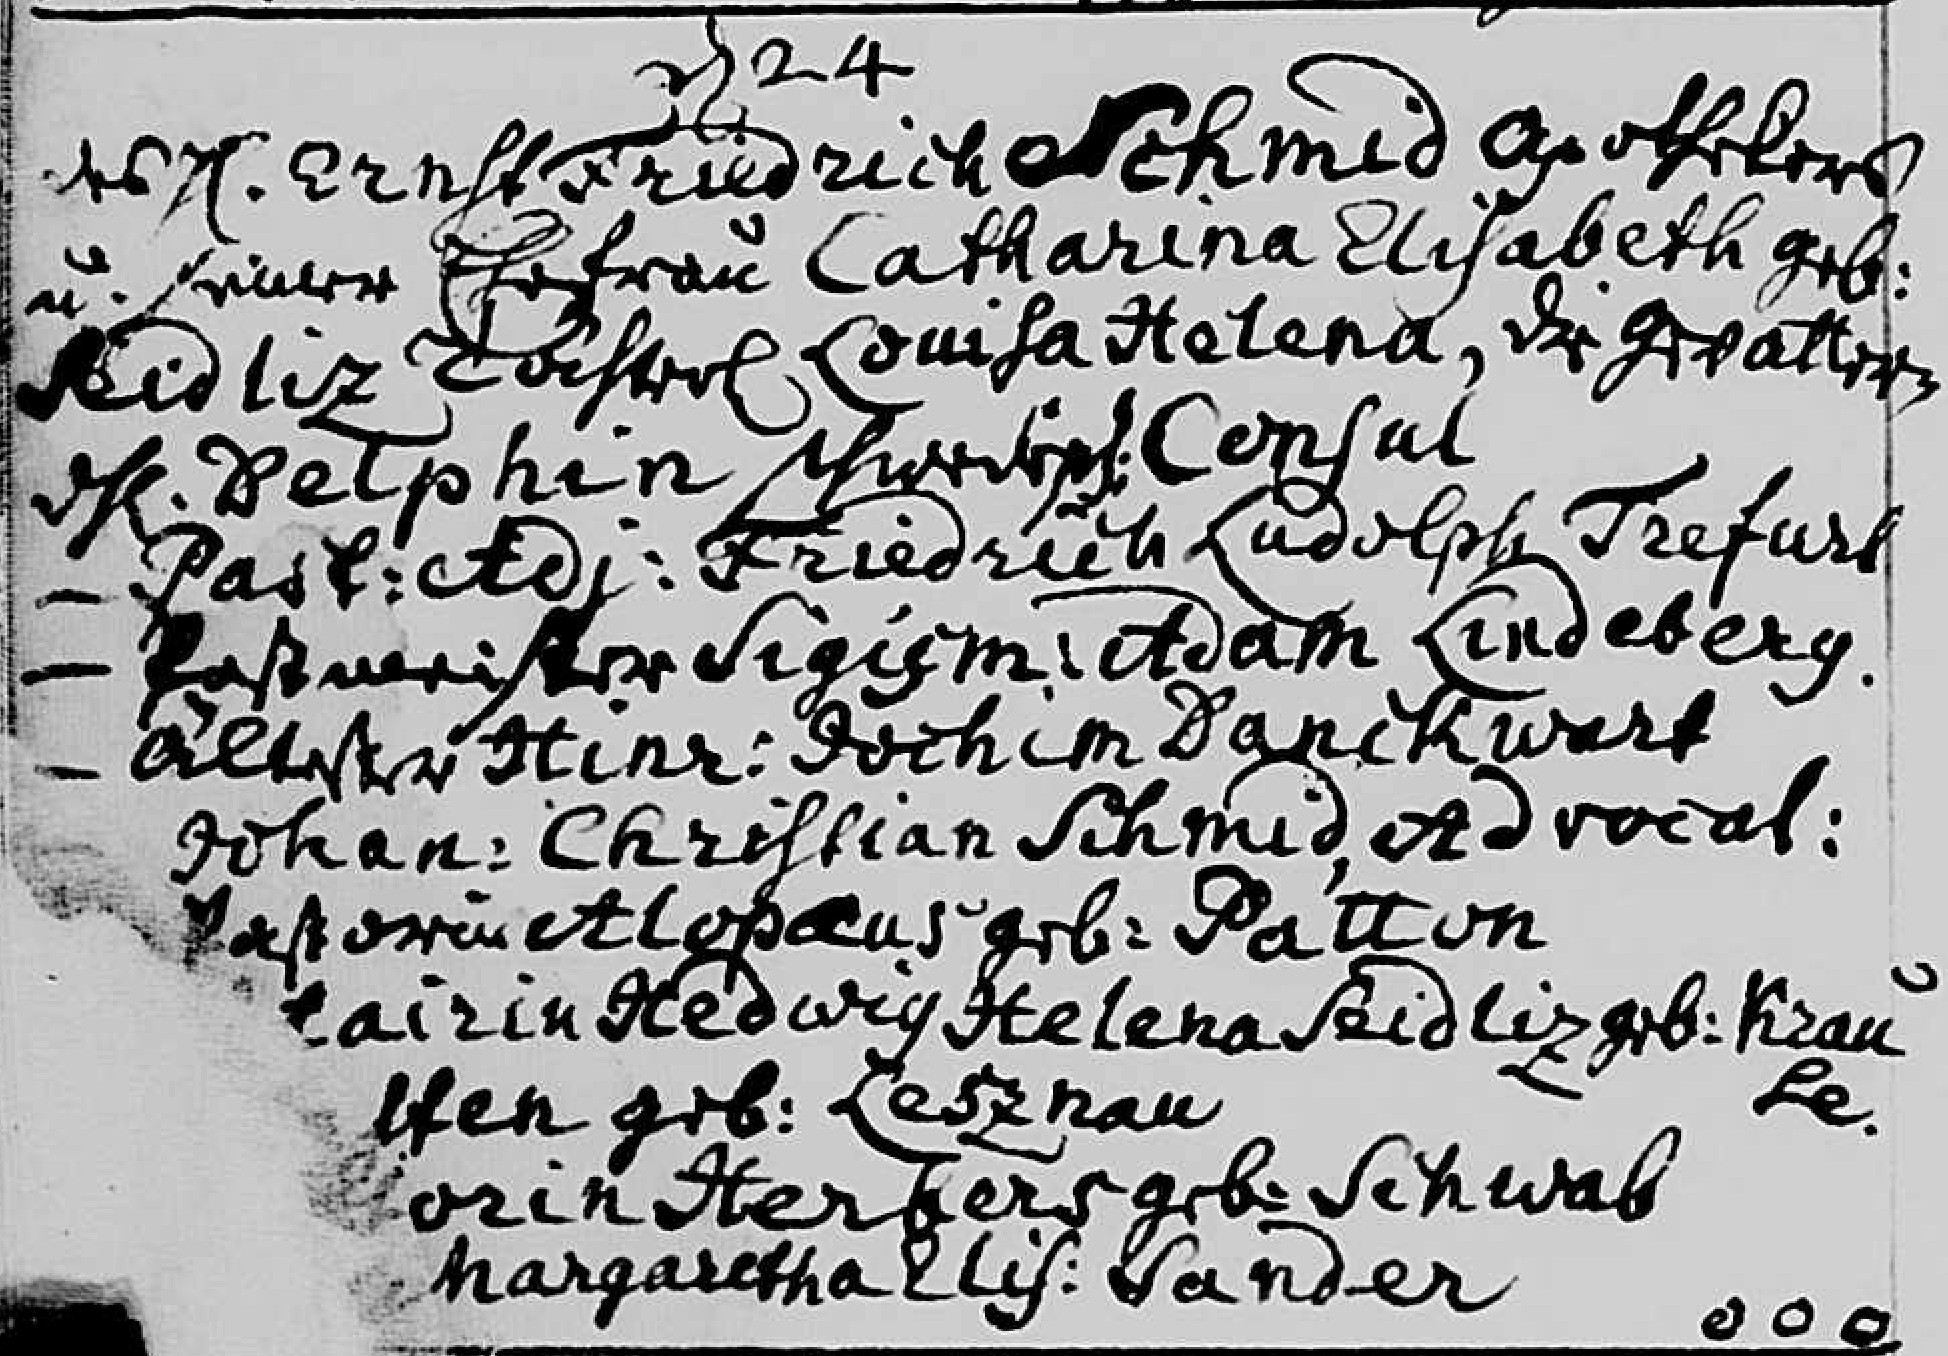 d 24
des H. Ernst Friedrich Schmid Apothekers
ŭ. seiner Ehefraŭ Catharina Elisabeth geb:
Seidliz Tochterl Louisa Helena, die gevattern
dH. Delphin Schwedisch: Consul
— Past: Adj: Friedrich Ludolph Trefurt
— Postmeister Sigism: Adam Lindeberg.
— Ältester Hinr: Jochim Danckwart
Johan: Christian Schmid, Advocat:
Pastorin Alopæus geb: Patton
tairin Hedwig Helena Seidliz geb: Kraŭ
se.
ffen geb: Lesznau
orin Herbers geb: Schwab
Margaretha Elis: Sander
o o o